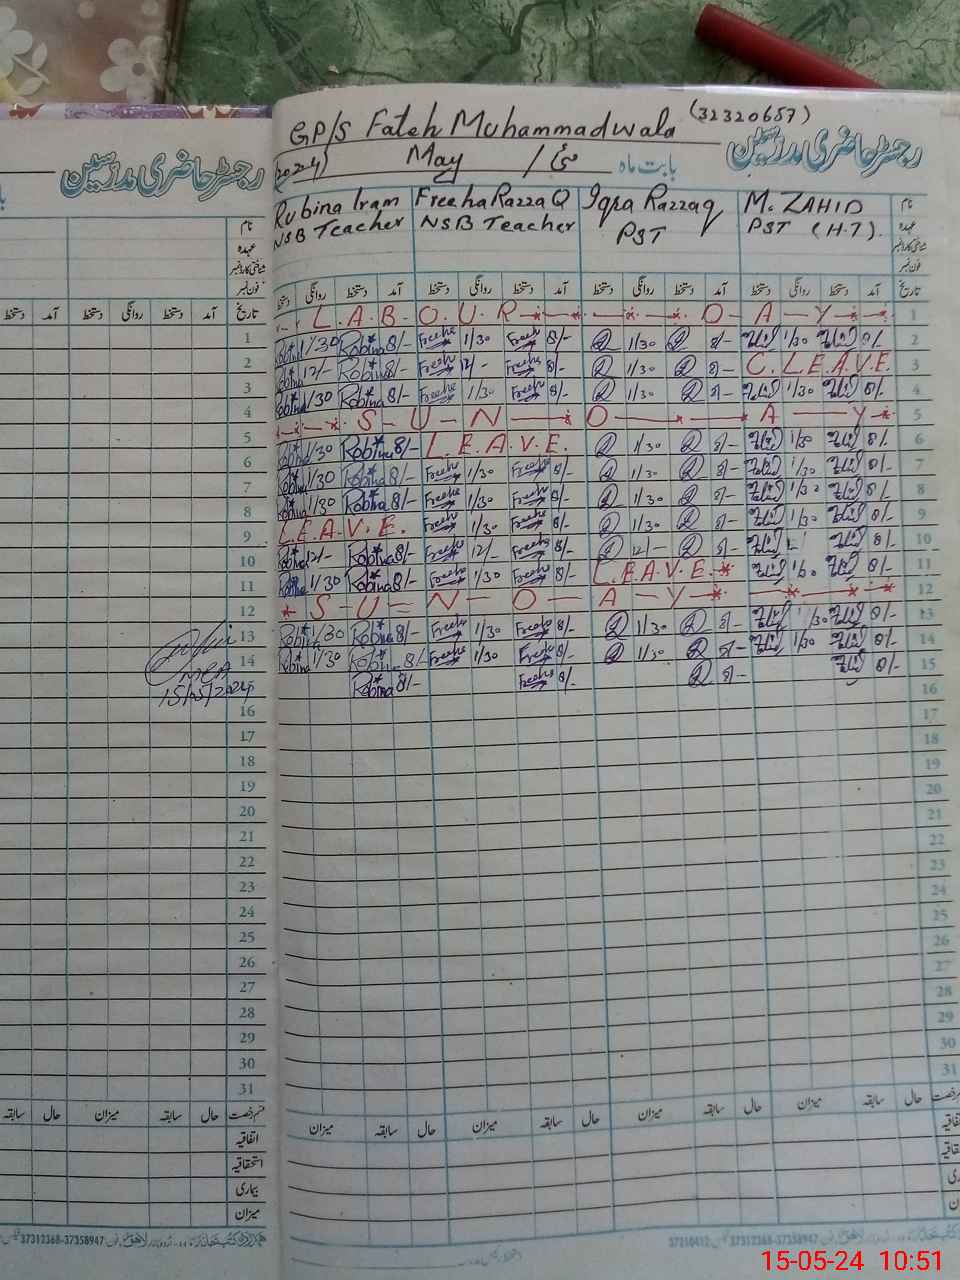 GP/S Fateh Muhammadwala (32320657)
رجسٹر حاضری مدرسین
(2024) May / مئی بابت ماہ
رجسٹر حاضری مدرسین
Rubina Iram FreehaRazzaQ Iqra Razzaq M. ZAHID نام
NSB Teacher NSB Teacher PST PST (H.T). عہدہ
فون نمبر
نام
عہدہ
فون نمبر
دستخط روانگی دستخط آمد دستخط روانگی دستخط آمد دستخط روانگی دستخط آمد دستخط روانگی دستخط آمد تاریخ
دستخط آمد دستخط روانگی دستخط آمد تاریخ
L.A.B.O.U.R D A Y 1
Robina 1/30 Robina 8/- Freeha 1/30 Freeha 8/- 1/30 8/- 1/30 8/- 2
Robina 12/- Robina 8/- Freeha 12/- Freeha 8/- 1/30 8/- C.L.E.A.V.E 3
Robina 1/30 Robina 8/- Freeha 1/30 Freeha 8/- 1/30 8/- 1/30 8/- 4
S U N D A Y 5
Robina 1/30 Robina 8/- L.E.A.V.E. 1/30 8/- 1/30 8/- 6
Robina 1/30 Robina 8/- Freeha 1/30 Freeha 8/- 1/30 8/- 1/30 8/- 7
Robina 1/30 Robina 8/- Freeha 1/30 Freeha 8/- 1/30 8/- 1/30 8/- 8
L.E.A.V.E. Freeha 1/30 Freeha 8/- 1/30 8/- 1/30 8/- 9
Robina 12/- Robina 8/- Freeha 12/- Freeha 8/- 12/- 8/- 8/- 10
Robina 1/30 Robina 8/- Freeha 1/30 Freeha 8/- L.E.A.V.E. 1/30 8/- 11
S U N D A Y 12
Robina 1/30 Robina 8/- Freeha 1/30 Freeha 8/- 1/30 8/- 1/30 8/- 13
Robina 1/30 Robina 8/- Freeha 1/30 Freeha 8/- 1/30 8/- 1/30 8/- 14
Robina 8/- Freeha 8/- 8/- 8/- 15
16
17
18
19
20
21
22
23
24
25
26
27
28
29
30
31
1
2
3
4
5
6
7
8
9
10
11
12
13
14
MEA
15/05/2024
16
17
18
19
20
21
22
23
24
25
26
27
28
29
30
31
سابقہ حال میزان سابقہ حال قسم رخصت
اتفاقیہ
استحقاقیہ
بیماری
میزان
میزان سابقہ حال میزان سابقہ حال میزان سابقہ حال میزان سابقہ حال
37312368-37358947
37312368-37358947
15-05-24 10:51